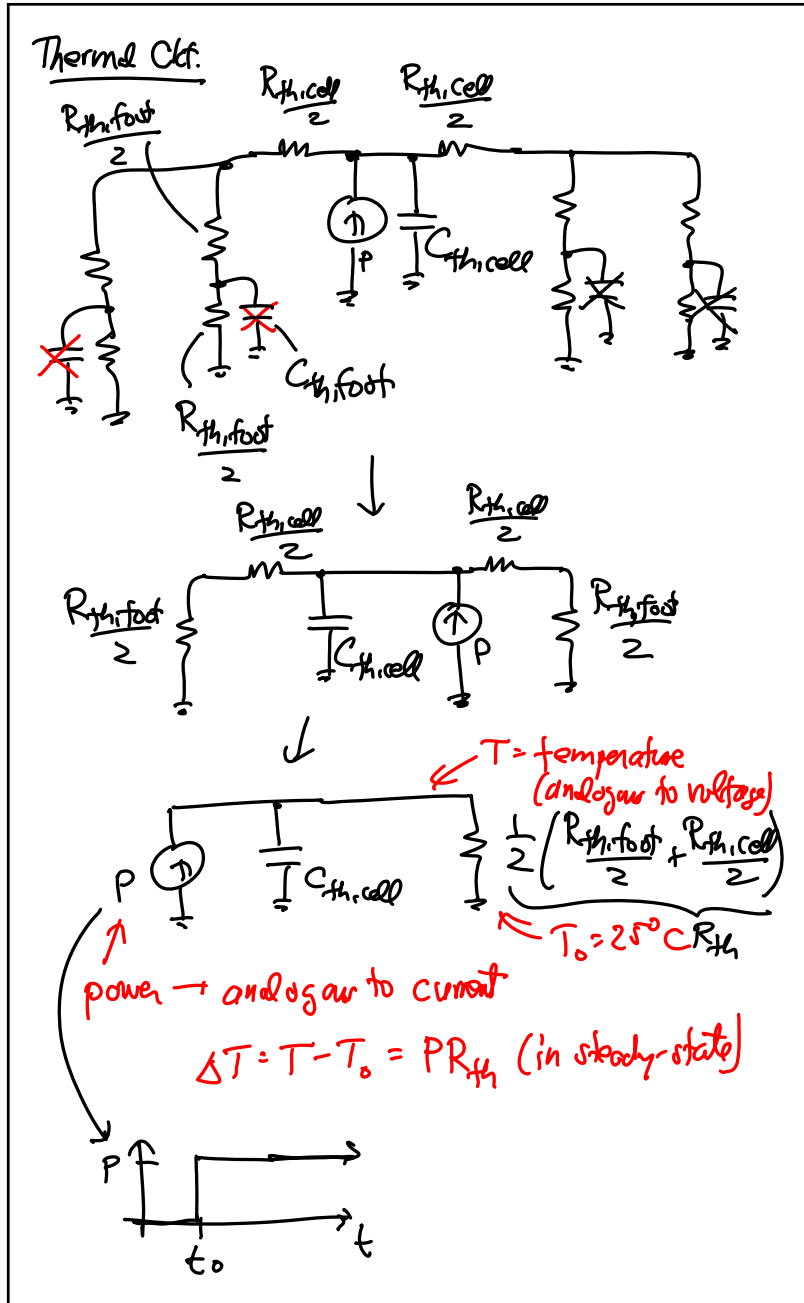 Thermal Ckt.
R_th,cell/2 R_th,cell/2
R_th,foot/2
P
C_th,cell
C_th,foot
R_th,foot/2
R_th,cell/2 R_th,cell/2
R_th,foot/2 R_th,foot/2
C_th,cell P
T = temperature
(analogous to voltage)
1/2 (R_th,foot/2 + R_th,cell/2)
P C_th,cell
T_0 = 25°C R_th
power → analogous to current
ΔT = T - T_0 = PR_th (in steady-state)
P
t_0 t